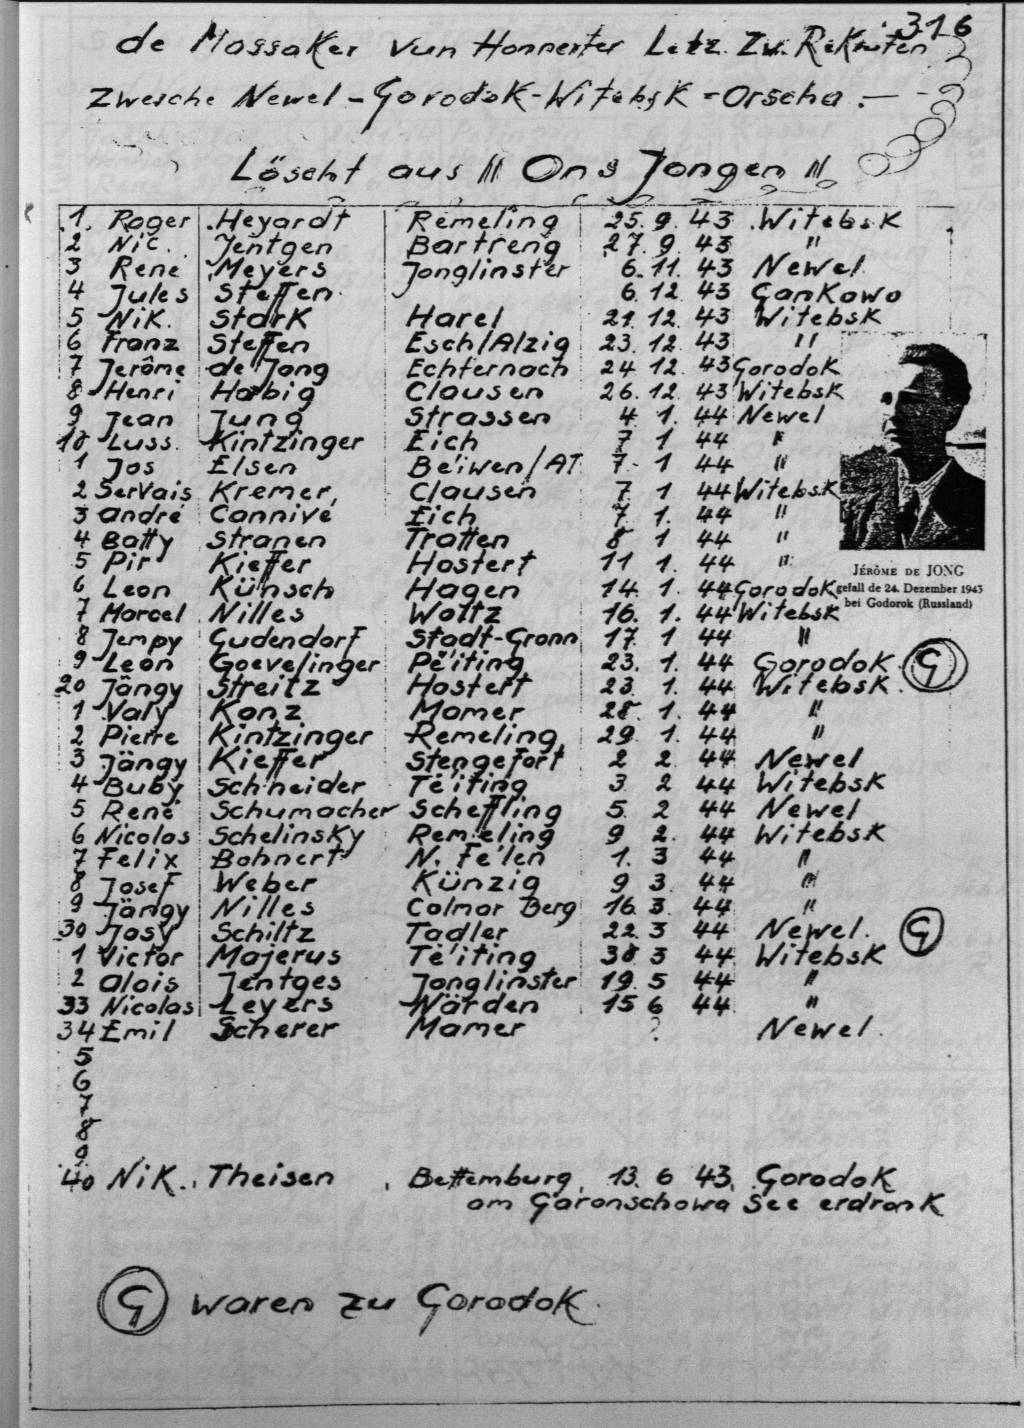 316
de Massaker vun Honnerter Letz. Zw. Rekruten
zwesche Newel - Gorodok - Witebsk - Orscha. -
Löscht aus " Ons Jongen "
1. Roger Heyardt Remeling 25. 9. 43 Witebsk
2 Nic. Jentgen Bartreng 27. 9. 43 "
3 Rene Meyers Jonglinster 6. 11. 43 Newel
4 Jules Steffen 6. 12. 43 Gankowo
5 Nik. Stark Harel 21. 12. 43 Witebsk
6 Franz Steffen Esch/Alzig 23. 12. 43 "
7 Jerôme de Jong Echternach 24 12. 43 Gorodok
8 Henri Habig Clausen 26. 12. 43 Witebsk
9 Jean Jung Strassen 4. 1. 44 Newel
10 Luss. Kintzinger Eich 7 1 44 "
1 Jos Elsen Beiwen/AT 7- 1 44 "
2 Servais Kremer, Clausen 7. 1 44 Witebsk
3 André Cannivé Eich 7. 1. 44 "
4 Batty Stranen Tratten 8 1 44 "
5 Pir Kieffer Hostert 11 1. 44 "
JÉRÔME DE JONG
6 Leon Künsch Hagen 14. 1. 44 Gorodok
gefall de 24. Dezember 1943
7 Marcel Nilles Woltz 16. 1. 44 Witebsk
bei Godorok (Russland)
8 Jempy Gudendorf Stadt-Gronn 17. 1 44 "
9 Leon Goevelinger Péiting 23. 1. 44 Gorodok G
20 Jängy Streitz Hostert 23. 1. 44 Witebsk.
1 Valy Konz Mamer 28. 1. 44 "
2 Pierre Kintzinger Remeling 29. 1. 44 "
3 Jängy Kieffer Stengefort 2 2. 44 Newel
4 Buby Schneider Téiting 3. 2 44 Witebsk
5 René Schumacher Scheffling 5. 2 44 Newel
6 Nicolas Schelinsky Remeling 9 2. 44 Witebsk
7 Felix Bohnert N. Félen 1. 3 44 "
8 Josef Weber Künzig 9 3. 44 "
9 Jängy Nilles Colmar Berg 16. 3. 44 "
30 Josy Schiltz Tadler 22. 3 44 Newel. G
1 Victor Majerus Téiting 30 3 44 Witebsk
2 Alois Jentges Jonglinster 19. 5 44 "
33 Nicolas Leyers Wärden 15 6 44 "
34 Emil Scherer Mamer ? Newel.
5
6
7
8
9
40 Nik. Theisen Bettemburg, 13. 6 43, Gorodok
am Garonschowa See erdronk
G waren zu Gorodok.